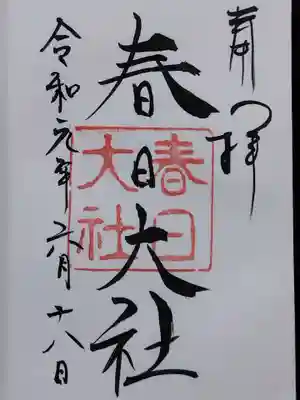 奉拝
春日大社
春日大社
令和元年六月十八日